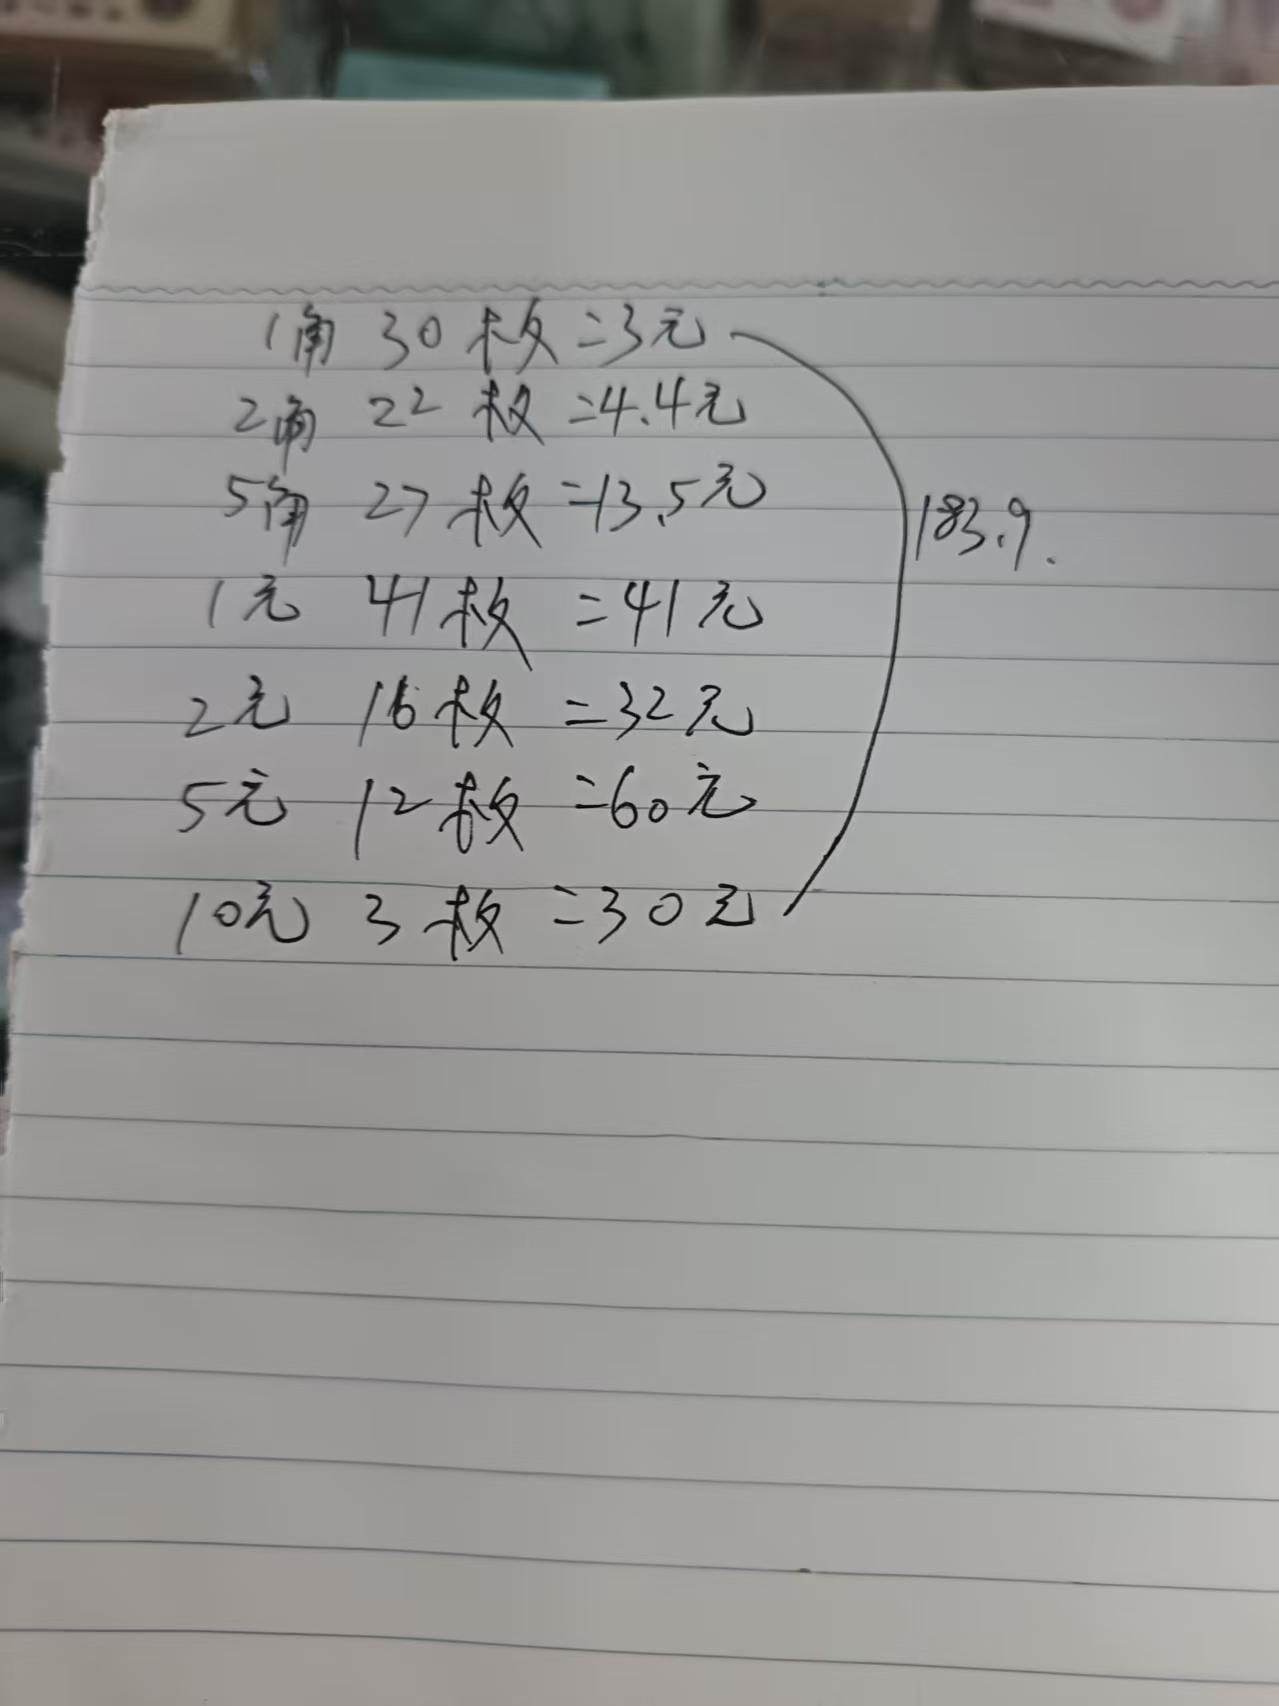 1角 30枚=3元
2角 22枚=4.4元
5角 27枚=13.5元
183.9.
1元 41枚=41元
2元 16枚=32元
5元 12枚=60元
10元 3枚=30元